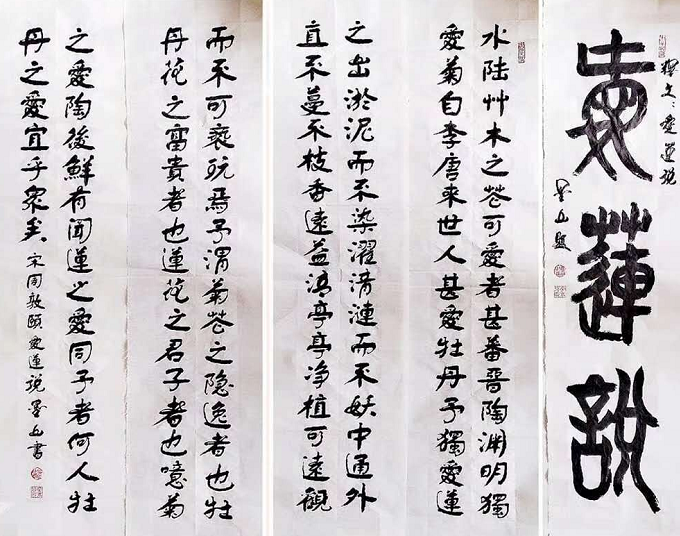 釋文：愛蓮説
愛蓮説
墨山題
水陆艸木之花可愛者甚蕃晋陶渊明獨
愛菊自李唐来世人甚愛牡丹予獨愛蓮
之出淤泥而不染濯清漣而不妖中通外
直不蔓不枝香遠益清亭亭净植可遠觀
而不可褻玩焉予谓菊花之隐逸者也牡
丹花之富貴者也蓮花之君子者也噫菊
之愛陶後鮮有聞蓮之愛同予者何人牡
丹之愛宜乎衆矣 宋周敦頤愛蓮説 墨山書